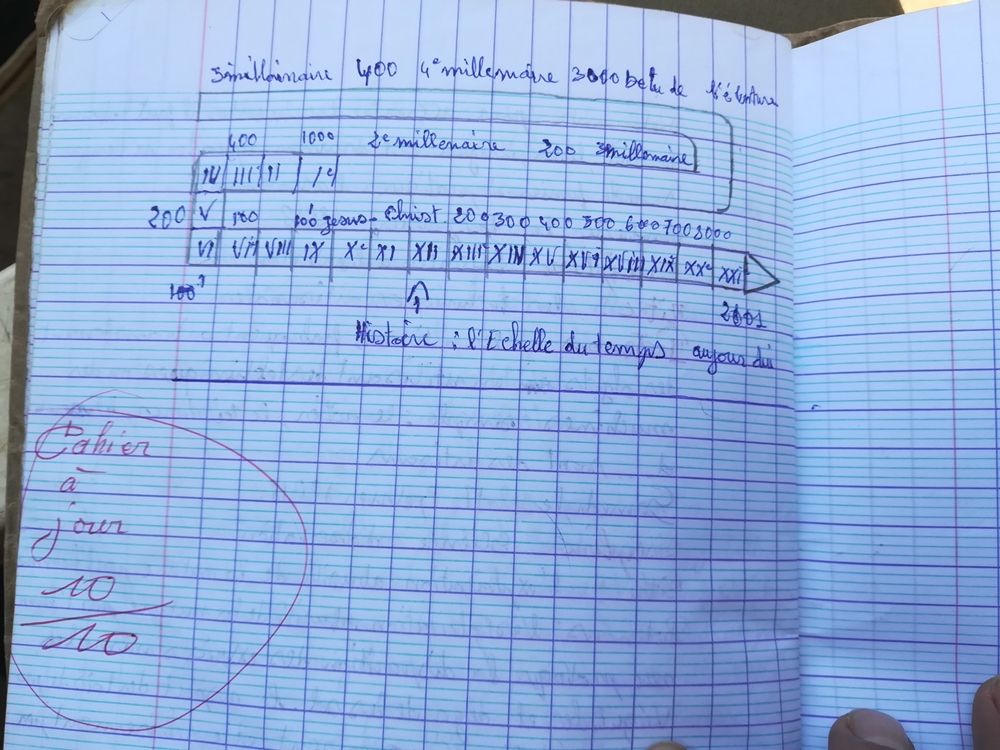 3millainaire 400 4e millemaire 3000 betu de l'écriture
400 1000 2e millenaire 200 3millomaine
IV III II Ie
200 V 100 Jesus-Christ 200 300 400 500 600 700 8000
VI VII VIII IX Xe XI XII XIII XIV XV XVI XVII XIX XXe XXI
100
2001
Histoire : l'Echelle du temps aujour dui
Cahier
à
jour
10
10